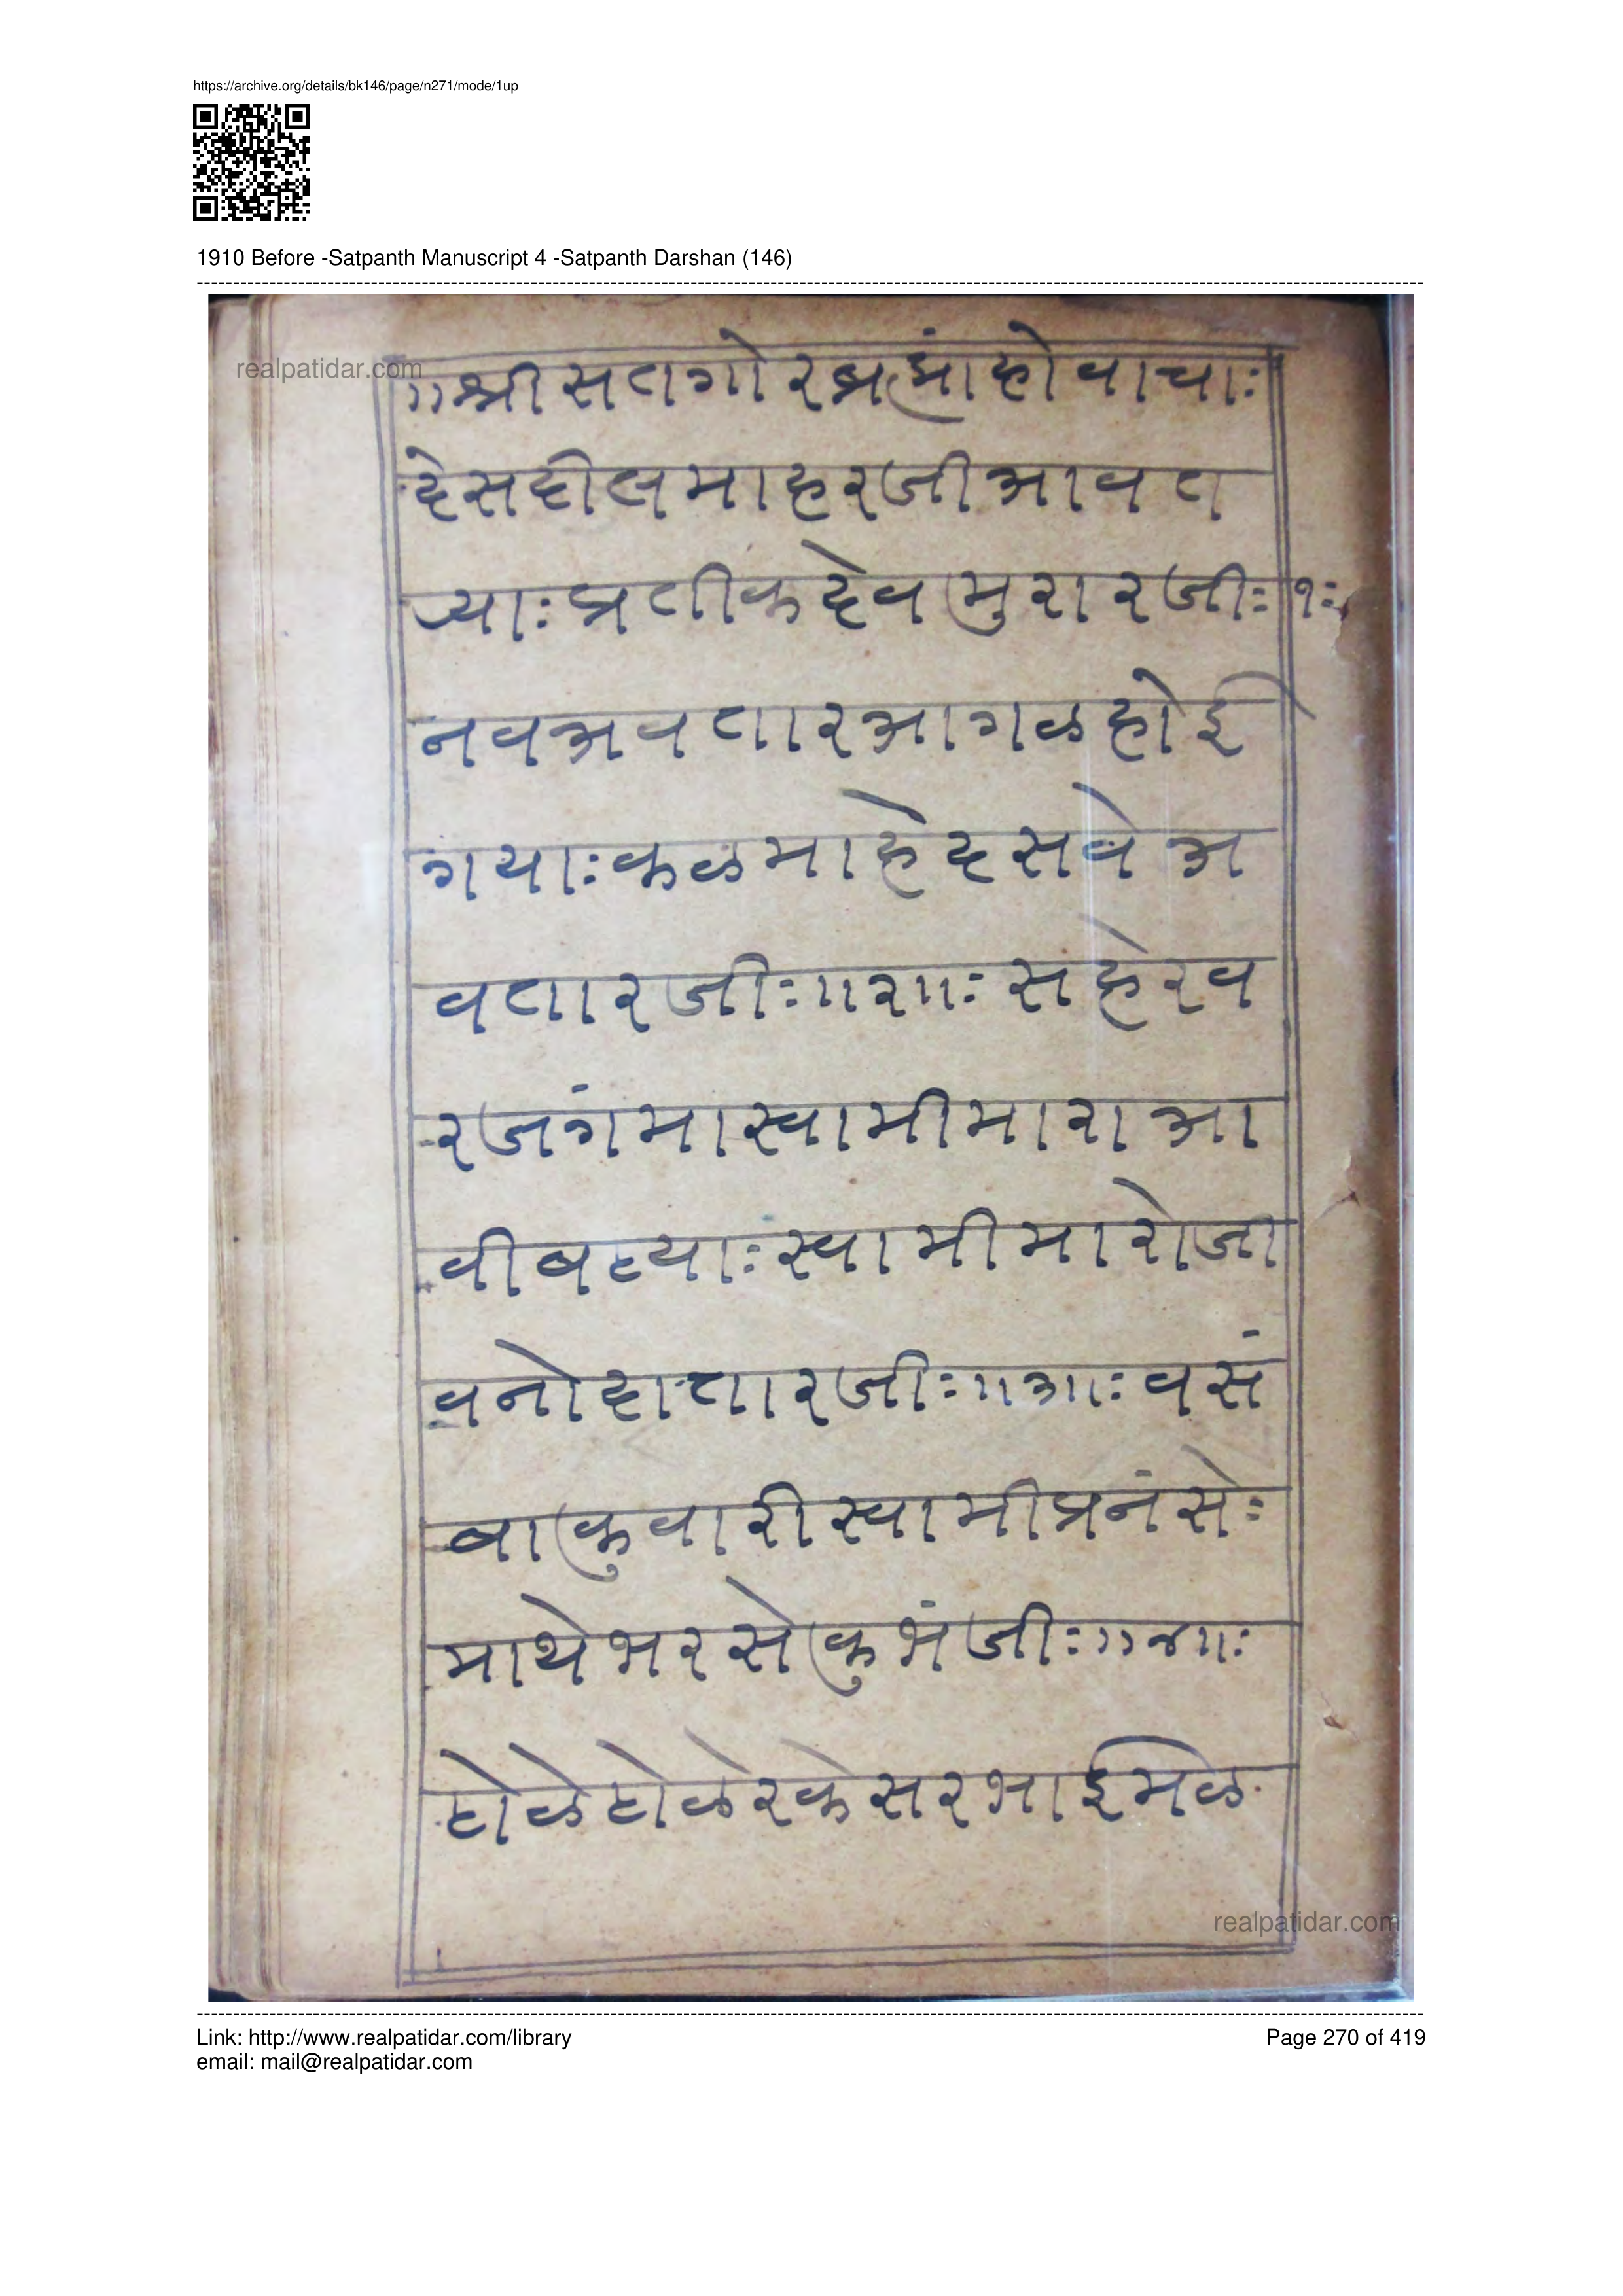 https://archive.org/details/bk146/page/n271/mode/1up
1910 Before -Satpanth Manuscript 4 -Satpanth Darshan (146)
realpatidar.com
॥श्रीसतगोरब्रह्मांहोवाचाः
देसदीलमाहरजीआवत
प्याःप्रतीकदेवमुरारजीः१ः
नवअवतारआगळहोई
गयाःकळमाहेदसवेअ
वतारजीः॥२॥ः सहेरव
रजगंमास्वामीमाराआ
वीबठ्याःस्वामीमारोजी
वनोदातारजीः॥३॥ःवसं
बाकुवारीस्वामीप्रनंसेः
माथेभरसेकुभंजीः॥४॥ः
टोळेटोळेरकेसरभाईमळ
realpatidar.com
Link: http://www.realpatidar.com/library
Page 270 of 419
email: mail@realpatidar.com